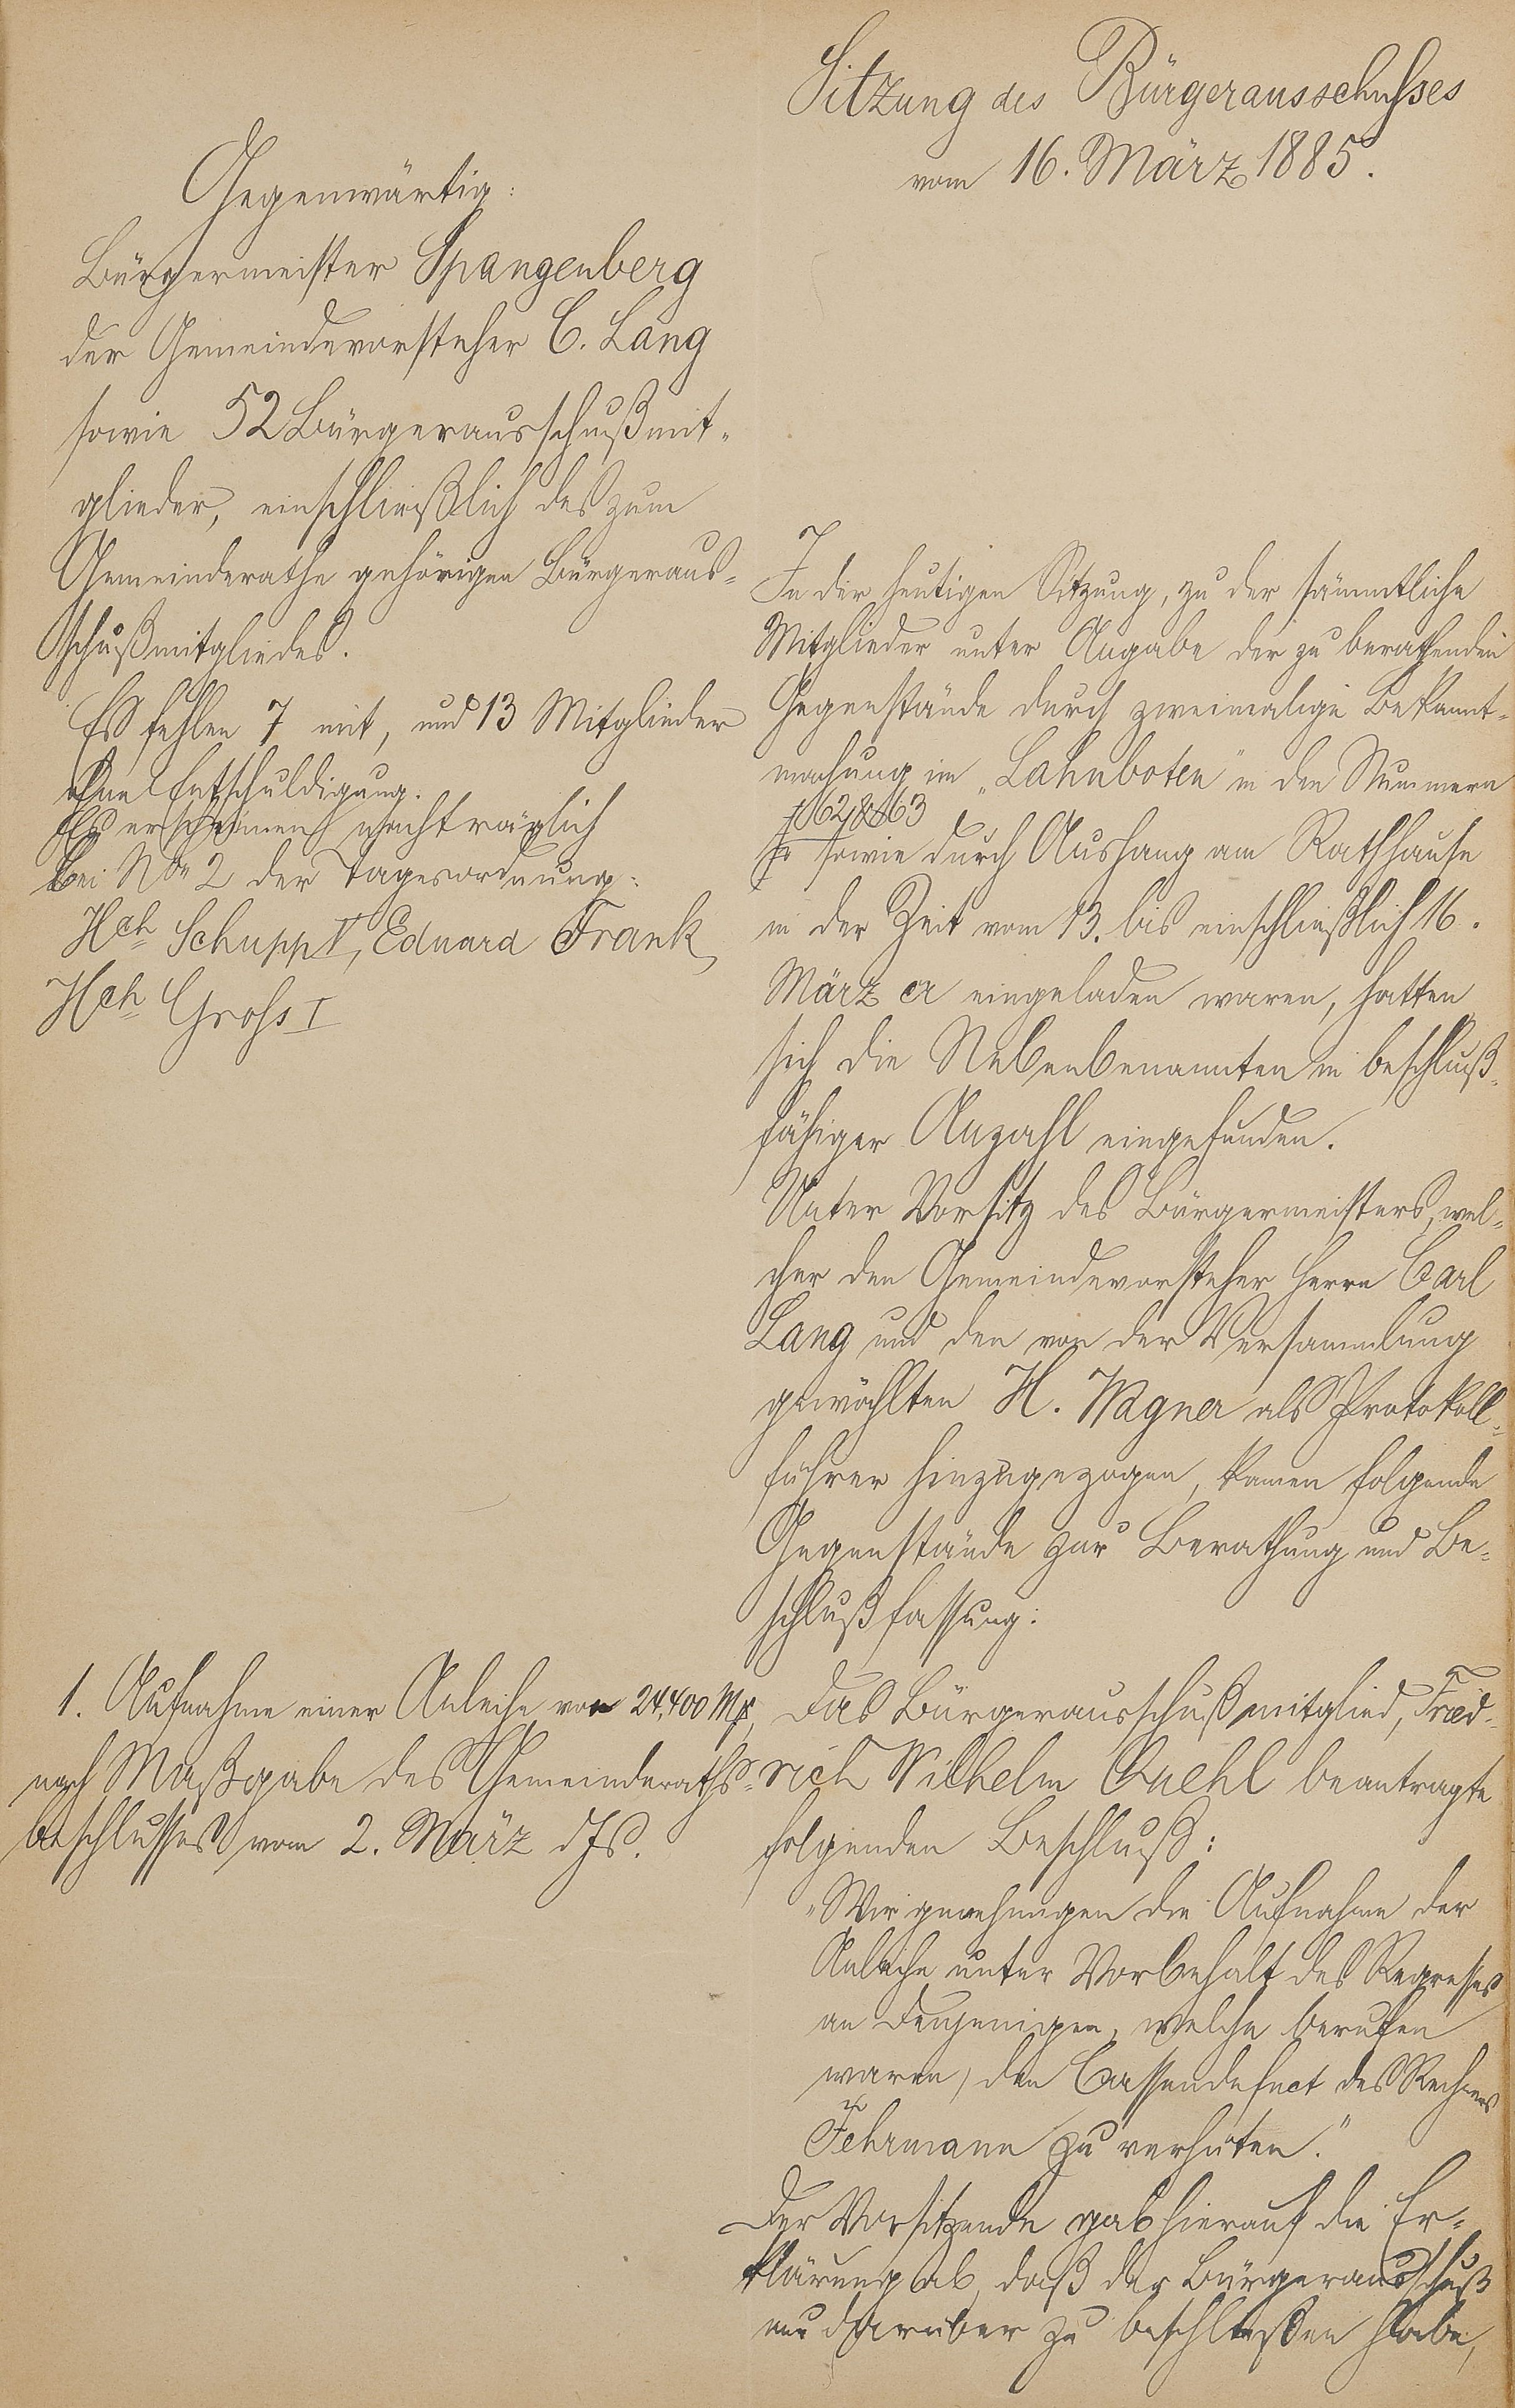 Sitzung des Bürgerausschusses
vom 16. März 1885.
Gegenwärtig:
Bürgermeister Spangenberg
der Gemeindevorsteher C. Lang
sowie 52 Bürgerausschußmit-
glieder, einschließlich des zum
Gemeinderathe gehörigen Bürgeraus-
schußmitgliedes.
Es fehlen 7 mit, und 13 Mitglieder
ohne Entschuldigung.
Es erscheinen nachträglich
bei No 2 der Tagesordnung:
Hch Schupp V, Eduard Frank,
Hch Groß I
In der heutigen Sitzung, zu der sämmtliche
Mitglieder unter Angabe der zu berathenden
Gegenstände durch zweimalige Bekannt-
machung im „Lahnboten" in den Nummern
62 & 63
sowie durch Aushang am Rathhause
in der Zeit vom 13. bis einschließlich 16.
März cr eingeladen waren, hatten
sich die Nebenbenannten in beschluß-
fähiger Anzahl eingefunden.
Unter Vorsitz des Bürgermeisters, wel-
cher den Gemeindevorsteher Herrn Carl
Lang und den von der Versammlung
gewählten H. Wagner als Protokoll-
führer hinzugezogen, kamen folgende
Gegenstände zur Berathung und Be-
schlußfassung:
1. Aufnahme einer Anleihe von 24,400 Mk,
nach Maßgabe des Gemeinderaths-
beschlusses vom 2. März djs.
Das Bürgerausschußmitglied, Fried-
rich Wilhelm beantragte
folgenden Beschluß:
„Wir genehmigen die Aufnahme der
Anleihe unter Vorbehalt des Regresses
an Denjenigen, welche berufen
waren, den Cassendefect des Rechners
Fehrmann zu verhüten."
Der Vorsitzende gab hierauf die Er-
klärung ab, daß der Bürgerausschuß
nur darüber zu beschließen habe,